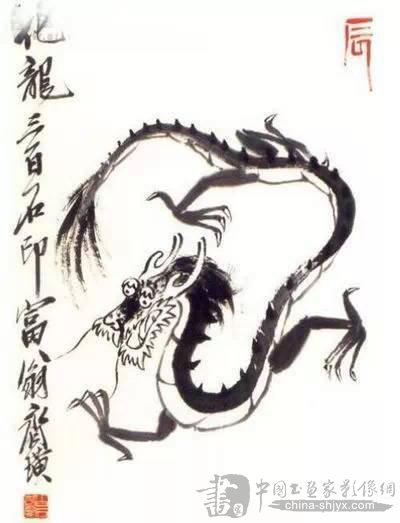 辰
化龍三百石印富翁齊璜
中國书畫家影像網
china-shjyx.com